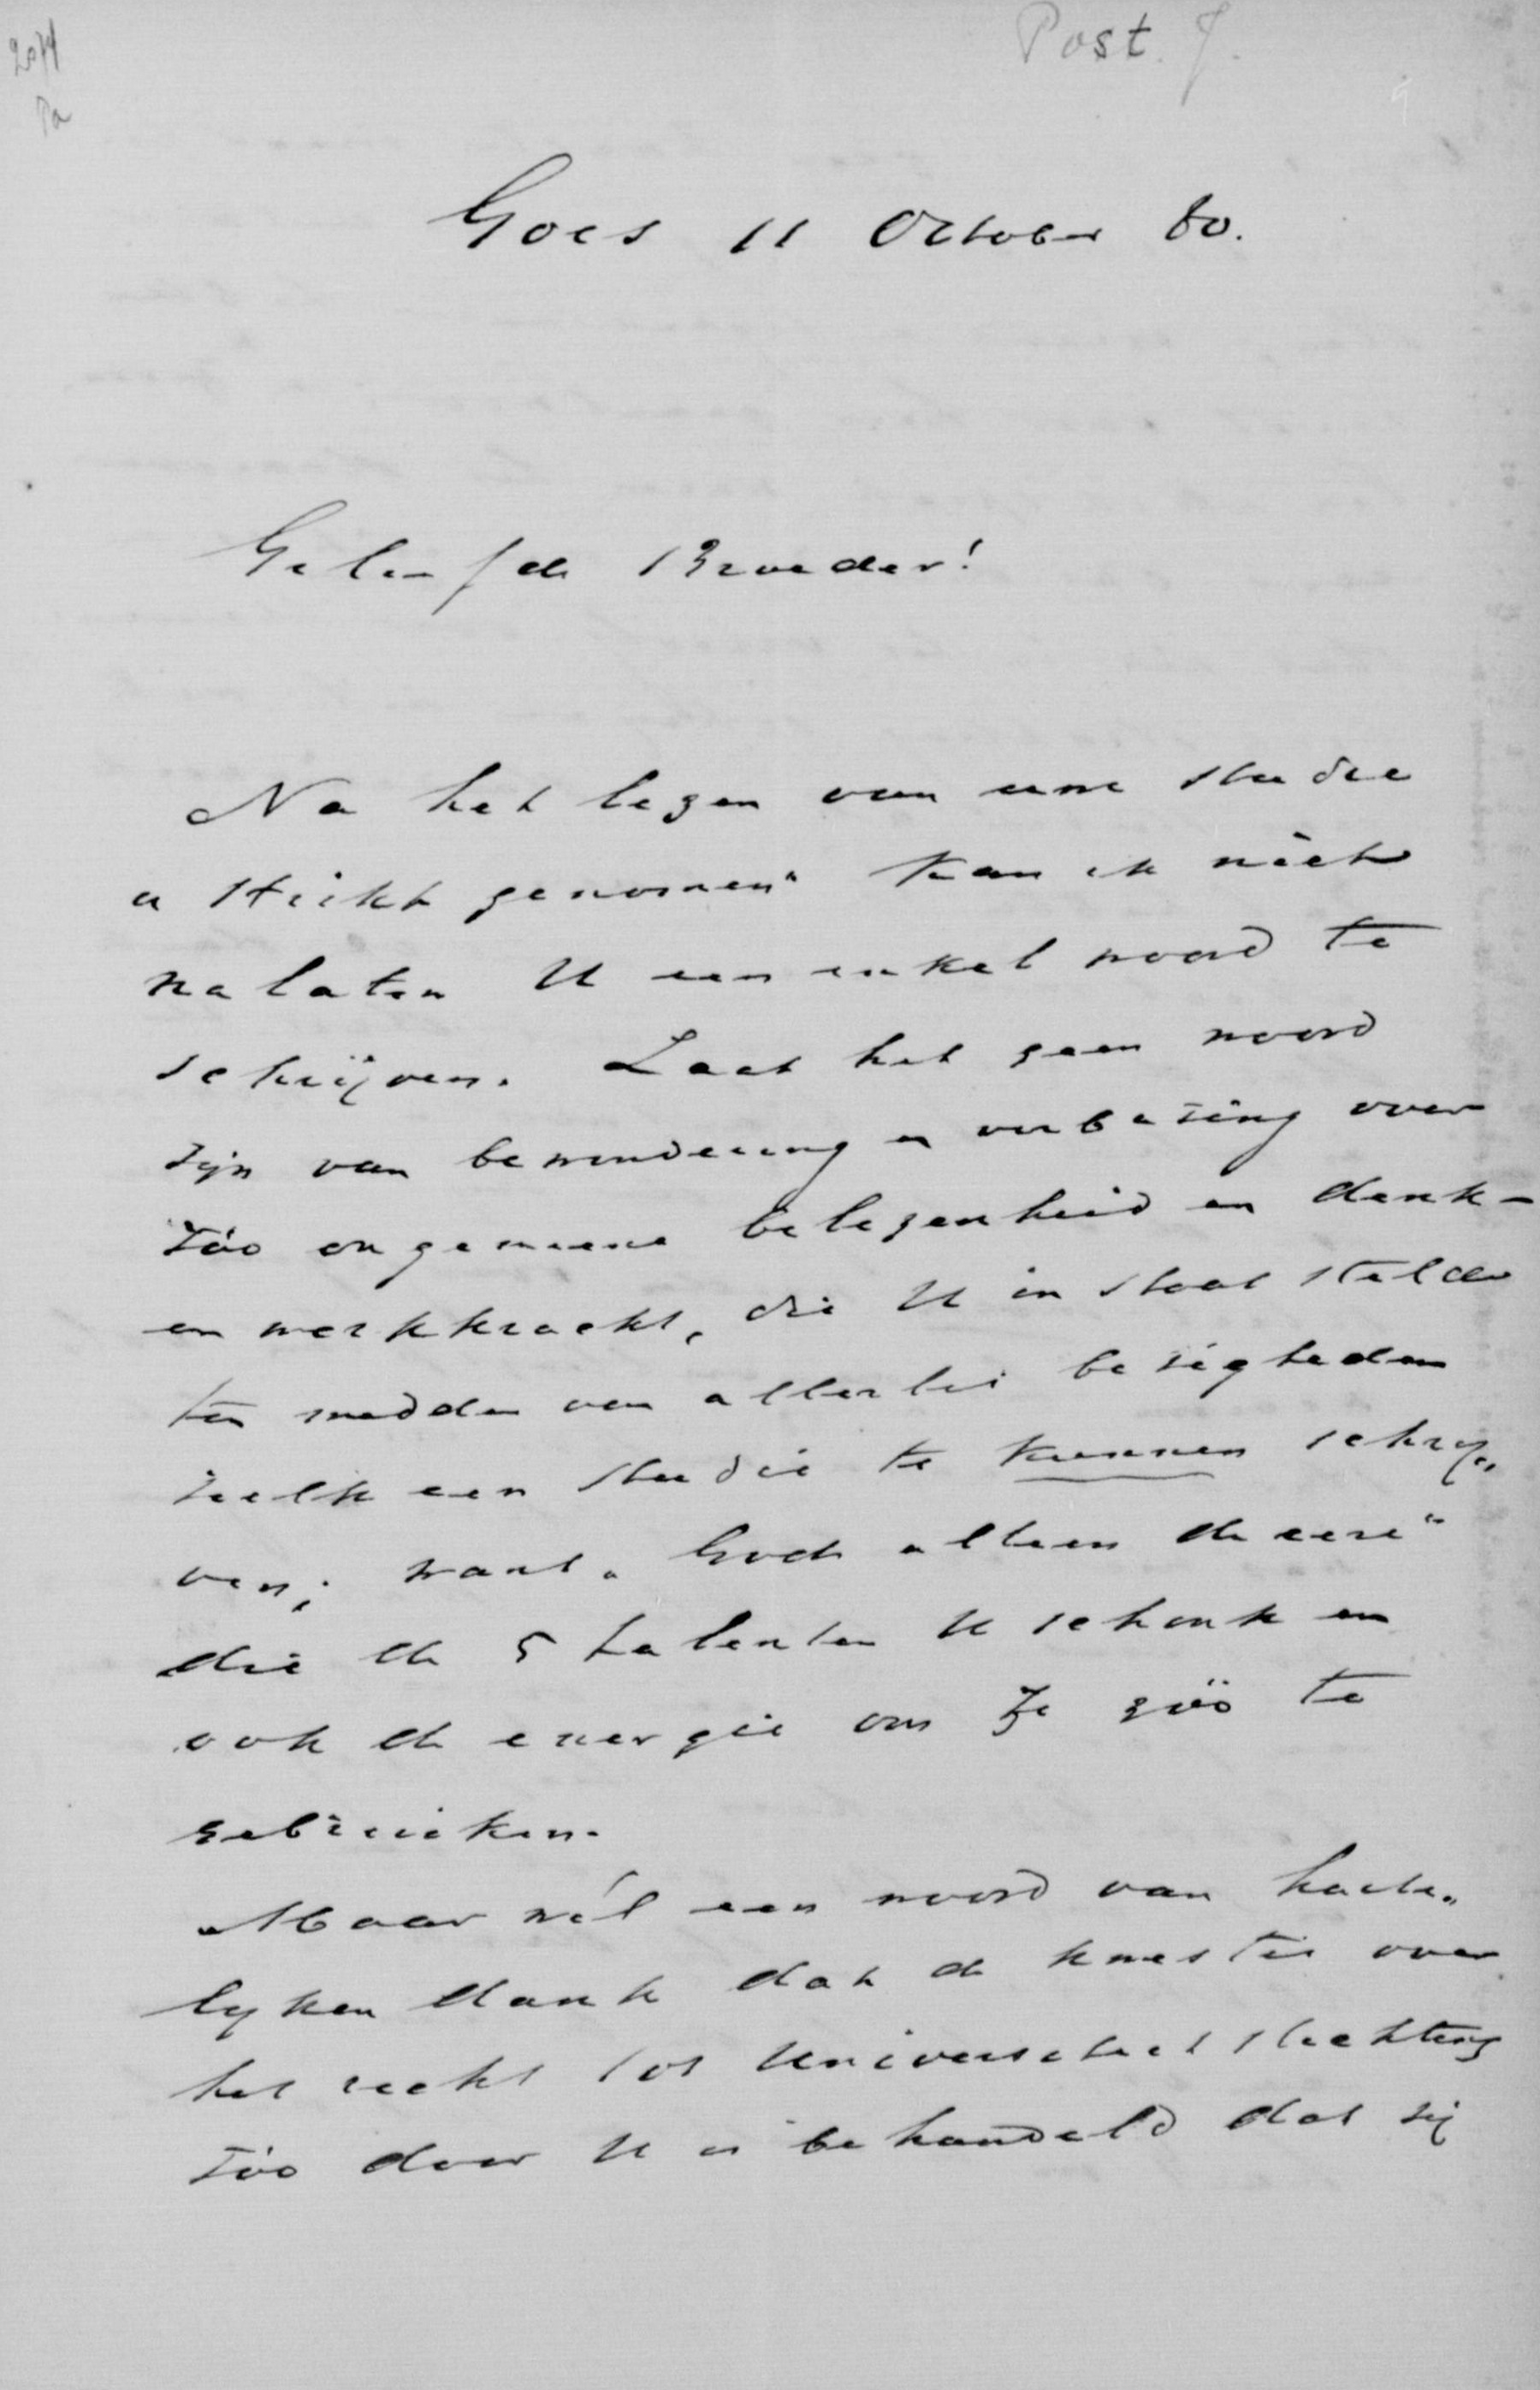 Post. J.
Goes 11 October 80.
Geliefde Broeder!
Na het lezen van uwe studie
„Strikt genomen" kan ik niet
nalaten U een enkel woord te
schrijven. Laat het geen woord
zijn van bewondering en verbazing over
zóo ongemeene belezenheid en denk-
en werkkracht, die U in staat stelde
ten midden van allerlei bezigheden
zulk een studie te kunnen schrij„
ven; want „Gode alleen de eere"
die de 5 talenten U schonk en
ook de energie om ze zóo te
gebruiken.
Maar wél een woord van harte„
lijken dank dat de kwestie over
het recht tot Universiteitstichting
zóo door U is behandeld dat zij